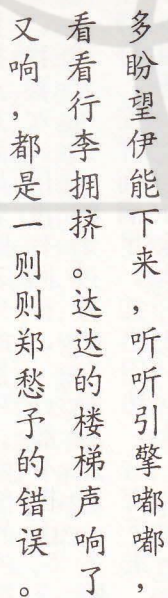 多盼望伊能下来，听听引擎嘟嘟，
看看行李拥挤。达达的楼梯声响了
又响，都是一则则郑愁予的错误。